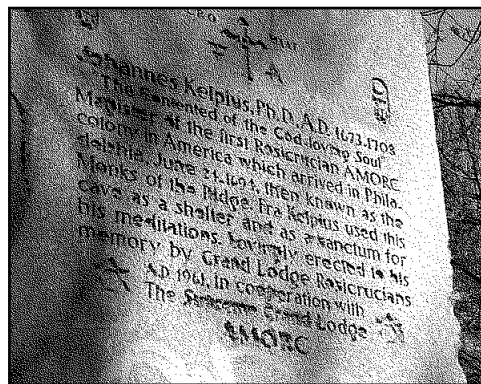 Johannes Kelpius, Ph.D. A.D. 1673-1708
"The Contented of the God-loving Soul"
Magister of the first Rosicrucian AMORC
colony in America which arrived in Phila-
delphia, June 24, 1694, then known as the
Monks of the Ridge. Fra Kelpius used this
cave as a shelter and as a sanctum for
his meditations. Lovingly erected to his
memory by Grand Lodge Rosicrucians
A.D. 1961, in cooperation with
The Supreme Grand Lodge
AMORC